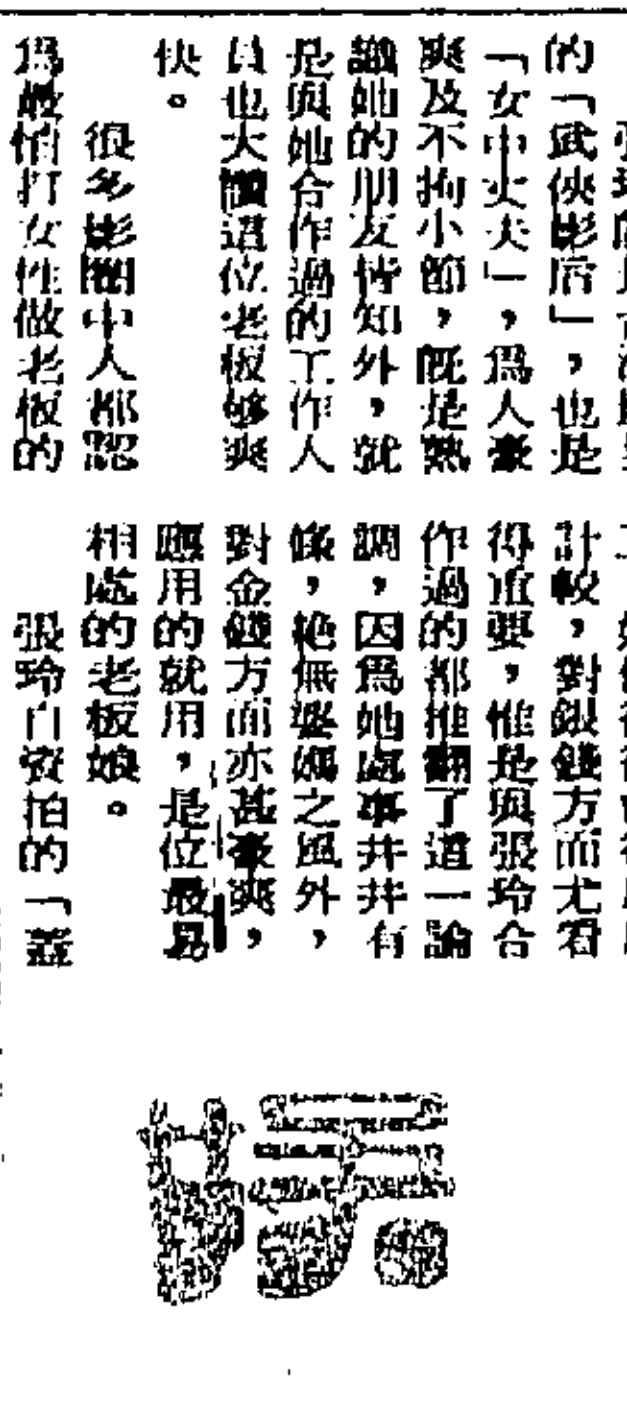 的「武俠影后」，也是
「女中丈夫」，爲人豪
爽及不拘小節，既是熟
識她的朋友皆知外，就
是與她合作過的工作人
員也大讚這位老板够爽
快。
很多影圈中人都認
爲最怕打女性做老板的
計較，對銀錢方面尤看
得重要，惟是與張玲合
作過的都推翻了這一論
調，因爲她處事井井有
條，絕無婆媽之風外，
對金錢方面亦甚豪爽，
應用的就用，是位最易
相處的老板娘。
張玲自資拍的「蓋